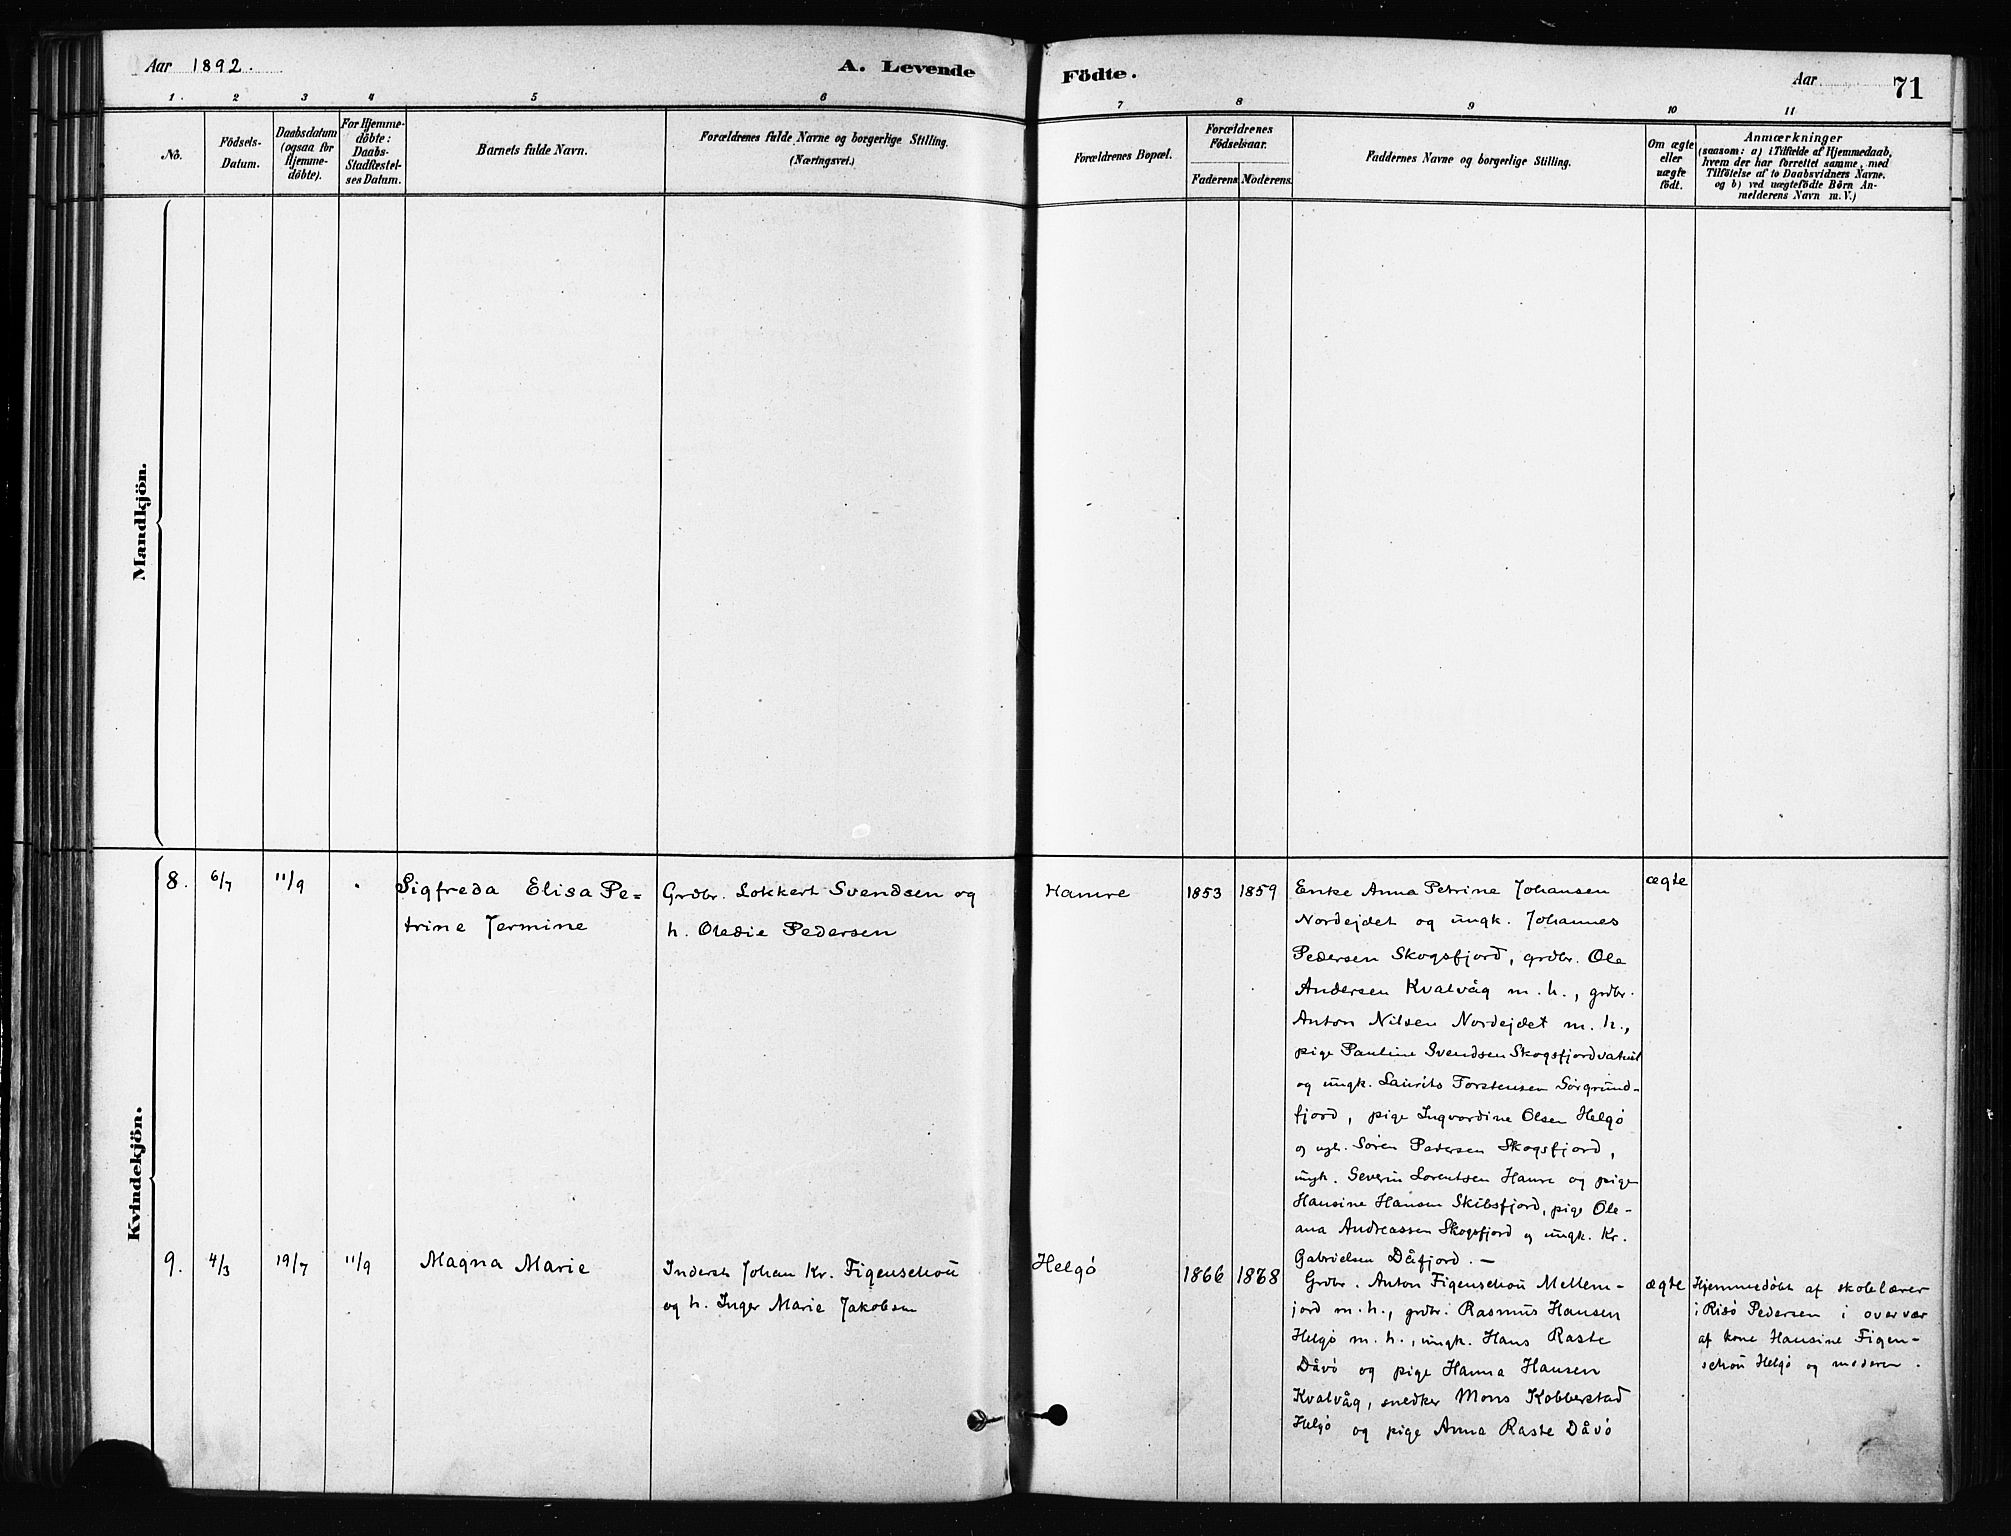 Aar 1892.
A. Levende
Födte.
Aar
71
1.
2
3
4
5
6
7
8
9
10
11
No.
Födsels-
Datum.
Daabsdatum
(ogsaa for
Hjemme-
döbte).
For Hjemme-
döbte:
Daabs-
Stadfæstel-
ses Datum.
Barnets fulde Navn.
Forældrenes fulde Navne og borgerlige Stilling.
(Næringsvei.)
Forældrenes Bopæl.
Forældrenes
Födselsaar.
Faderens
Moderens.
Faddernes Navne og borgerlige Stilling.
Om ægte
eller
uægte
födt.
Anmærkninger
(saasom: a) i Tilfælde af Hjemmedaab,
hvem der har forrettet samme, med
Tilföielse af to Daabsvidners Navne.
og b) ved uægtefödte Börn An-
melderens Navn m. V.)
Mandkjön.
Kvindekjön.
8.
6/7
11/9
Sigfreda Elisa Pe-
trine Jermine
Grdbr. Lokkert Svendsen og
h. Oledie Pedersen
Hamre
1853
1859
Enke Anna Petrine Johansen
Nordejdet og ungk. Johannes
Pedersen Skogsfjord, grdbr. Ole
Andersen Kvalvåg m. h., grdbr.
Anton Nilsen Nordejdet m. h.,
pige Pauline Svendsen
og ungk. Laurits Torstensen Sörgrund-
fjord, pige Ingvardine Olsen Helgö
og ugk. Sören Pedersen Skogsfjord,
ungk. Severin Lorentsen Hamre og pige
Hansine Hansen Skibsfjord, pige Ole-
ana Andreassen Skogsfjord og ungk. Kr.
Gabrielsen Dåfjord. —
ægte
9.
4/3
19/7
11/9
Magna Marie
Inderst Johan Kr. Figenschou
og h. Inger Marie Jakobsen
Helgö
1866
1868
Grdbr. Anton Figenschou Mellem-
jord m. h., grdbr. Rasmus Hansen
Helgö m. h., ungk. Hans Raste
Dåvö og pige Hanna Hansen
Kvalvåg, snedker Mons Kobberstad
Helgö og pige Anna Raste Dåvö
ægte
Hjemmedöbt af skolelærer
i Risö Pedersen i overvær
af kone Hansine Figen-
schou Helgö og moderen.